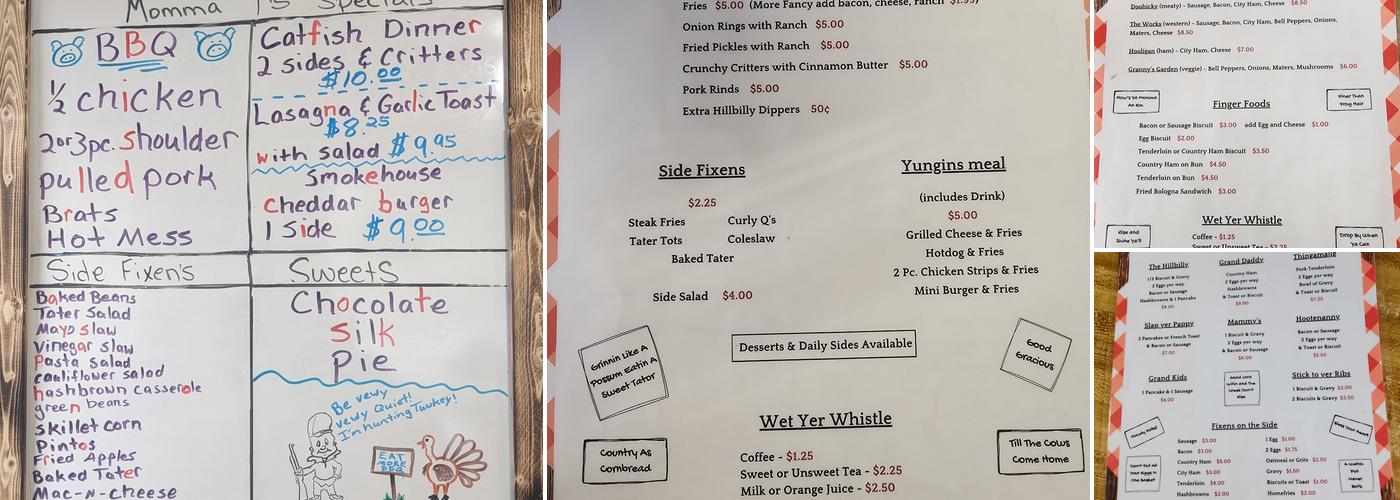 Momma T's Specials
BBQ
1/2 chicken
2or3pc. shoulder
pulled pork
Brats
Hot Mess
Catfish Dinner
2 sides & Critters
$10.00
Lasagna & Garlic Toast
$8.25
with salad $9.95
Smokehouse
cheddar burger
1 side $9.00
Side Fixen's
Baked Beans
Tater Salad
Mayo slaw
Vinegar slaw
Pasta salad
cauliflower salad
hashbrown casserole
green beans
Skillet corn
Pintos
Fried Apples
Baked Tater
Mac-n-cheese
Sweets
Chocolate
Silk
Pie
Be vewy
vewy Quiet!
I'm hunting Tuwkey!
EAT
MORE
BBQ
Fries $5.00 (More Fancy add bacon, cheese, ranch $1.99)
Onion Rings with Ranch $5.00
Fried Pickles with Ranch $5.00
Crunchy Critters with Cinnamon Butter $5.00
Pork Rinds $5.00
Extra Hillbilly Dippers 50¢
Side Fixens
$2.25
Steak Fries Curly Q's
Tater Tots Coleslaw
Baked Tater
Side Salad $4.00
Yungins meal
(includes Drink)
$5.00
Grilled Cheese & Fries
Hotdog & Fries
2 Pc. Chicken Strips & Fries
Mini Burger & Fries
Grinnin Like A
Possum Eatin A
Sweet Tator
Desserts & Daily Sides Available
Good
Gracious
Wet Yer Whistle
Country As
Cornbread
Coffee - $1.25
Sweet or Unsweet Tea - $2.25
Milk or Orange Juice - $2.50
Till The Cows
Come Home
Doohicky (meaty) - Sausage, Bacon, City Ham, Cheese $8.50
The Works (western) - Sausage, Bacon, City Ham, Bell Peppers, Onions,
Maters, Cheese $8.50
Hooligan (ham) - City Ham, Cheese $7.00
Granny's Garden (veggie) - Bell Peppers, Onions, Maters, Mushrooms $6.00
How's Ya Momma
An Em
Finer Than
Frog Hair
Finger Foods
Bacon or Sausage Biscuit $3.00 add Egg and Cheese $1.00
Egg Biscuit $2.00
Tenderloin or Country Ham Biscuit $3.50
Country Ham on Bun $4.50
Tenderloin on Bun $4.50
Fried Bologna Sandwich $3.00
Wet Yer Whistle
Rise and
Shine Ya'll
Coffee - $1.25
Sweet or Unsweet Tea - $2.25
Drop By When
Ya Can
The Hillbilly
1/2 Biscuit & Gravy
2 Eggs yer way
Bacon or Sausage
Hashbrowns & 1 Pancake
$8.00
Grand Daddy
Country Ham
2 Eggs yer way
Hashbrowns
& Toast or Biscuit
$9.00
Thingamajig
Pork Tenderloin
2 Eggs yer way
Bowl of Gravy
& Toast or Biscuit
$7.25
Slap yer Pappy
2 Pancakes or French Toast
& Bacon or Sausage
$7.00
Mammy's
1 Biscuit & Gravy
2 Eggs yer way
& Bacon or Sausage
$6.00
Hootenanny
Bacon or Sausage
2 Eggs yer way
& Toast or Biscuit
$5.50
Grand Kids
1 Pancake & 1 Sausage
$4.00
Good Lord
Willin and The
Creek Don't
Rise
Stick to yer Ribs
1 Biscuit & Gravy $2.00
2 Biscuits & Gravy $3.50
Bless Your Heart
Fixens on the Side
Don't Put All
Your Eggs in
One Basket
Sausage $3.00
Bacon $3.00
Country Ham $5.00
City Ham $3.00
Tenderloin $4.00
Hashbrowns $2.00
1 Egg $1.00
2 Eggs $1.75
Oatmeal or Grits $2.50
Gravy $1.50
Biscuits or Toast $1.00
Homefries $2.00
A Watch
Pot
Never
Boils